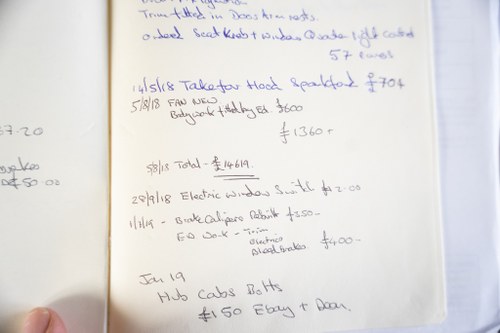 Trim fitted in Doors Arm rests.
ordered Seat Knob + window Quarter light control
57 Euros
14/5/18 Take for Hood Sparkford £704
5/8/18 FAN NEW £600
Bodywork fitted by Ed.
£1360 +
5/8/18 Total - £14619.
28/9/18 Electric Window Switch
1/1/19 - Brake Calipers Rebuilt £350-
ED Work - Trim
electrics
Bleed Brakes £400-
37.20
£50.00
Jan 19
Hub Cabs Bolts
£150 Ebay + Dean